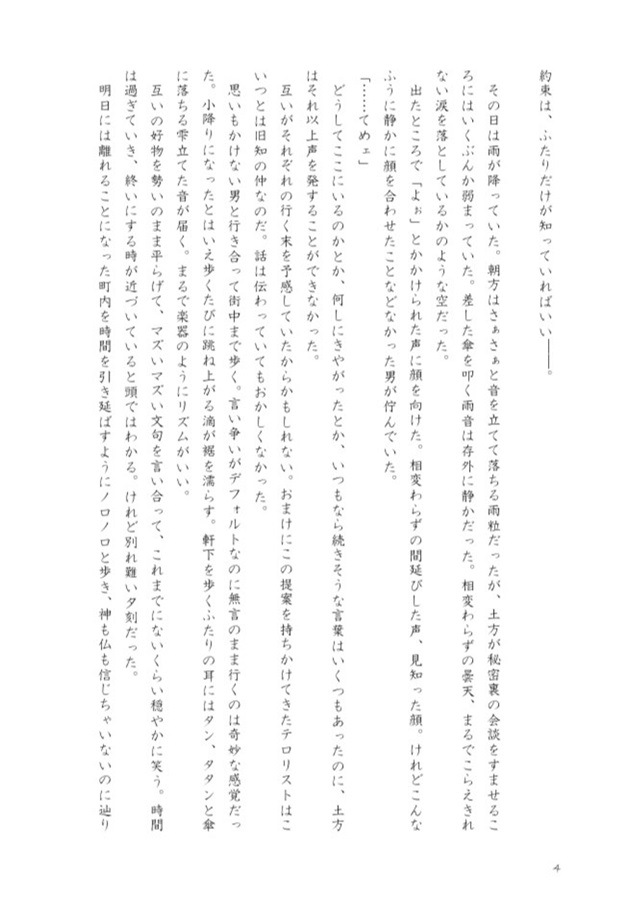 約束は、ふたりだけが知っていればいい――。
その日は雨が降っていた。朝方はさぁさぁと音を立てて落ちる雨粒だったが、土方が秘密裏の会談をすませるこ
ろにはいくぶんか弱まっていた。差した傘を叩く雨音は存外に静かだった。相変わらずの曇天、まるでこらえきれ
ない涙を落としているかのような空だった。
出たところで「よぉ」とかかけられた声に顔を向けた。相変わらずの間延びした声、見知った顔。けれどこんな
ふうに静かに顔を合わせたことなどなかった男が佇んでいた。
「……てめェ」
どうしてここにいるのかとか、何しにきやがったとか、いつもなら続きそうな言葉はいくつもあったのに、土方
はそれ以上声を発することができなかった。
互いがそれぞれの行く末を予感していたからかもしれない。おまけにこの提案を持ちかけてきたテロリストはこ
いつとは旧知の仲なのだ。話は伝わっていてもおかしくなかった。
思いもかけない男と行き合って街中まで歩く。言い争いがデフォルトなのに無言のまま行くのは奇妙な感覚だっ
た。小降りになったとはいえ歩くたびに跳ね上がる滴が裾を濡らす。軒下を歩くふたりの耳にはタン、タタンと傘
に落ちる雫立てた音が届く。まるで楽器のようにリズムがいい。
互いの好物を勢いのまま平らげて、マズいマズい文句を言い合って、これまでにないくらい穏やかに笑う。時間
は過ぎていき、終いにする時が近づいていると頭ではわかる。けれど別れ難い夕刻だった。
明日には離れることになった町内を時間を引き延ばすようにノロノロと歩き、神も仏も信じちゃいないのに辿り
4